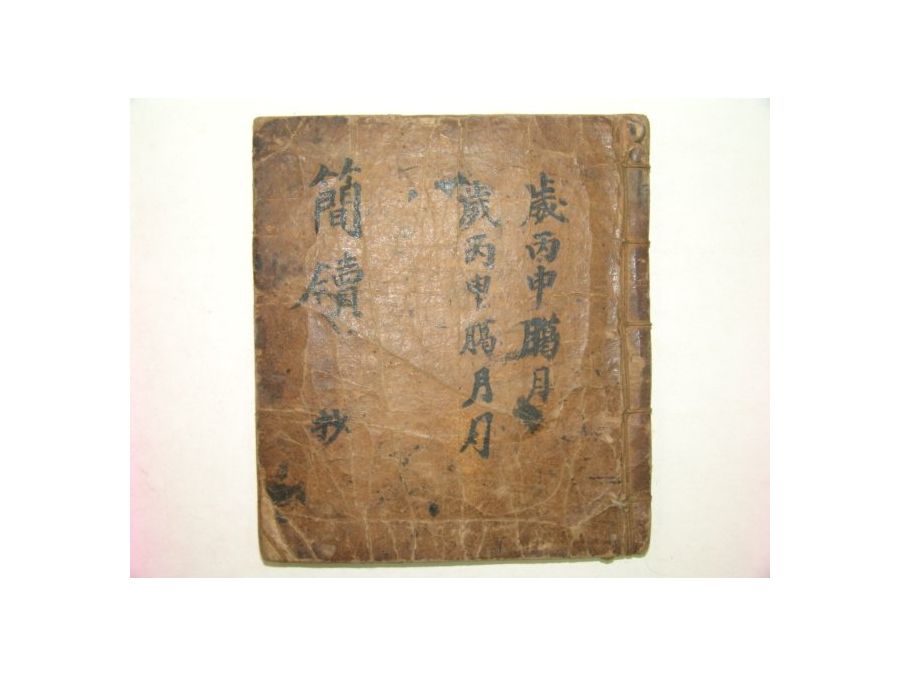 歲丙申臈月
歲丙申臈月月
簡牘抄